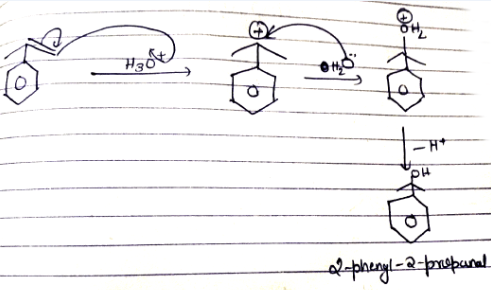 H₃O⁺
⊕
H₂Ö
⊕
OH₂
– H⁺
OH
2-phenyl-2-propanal